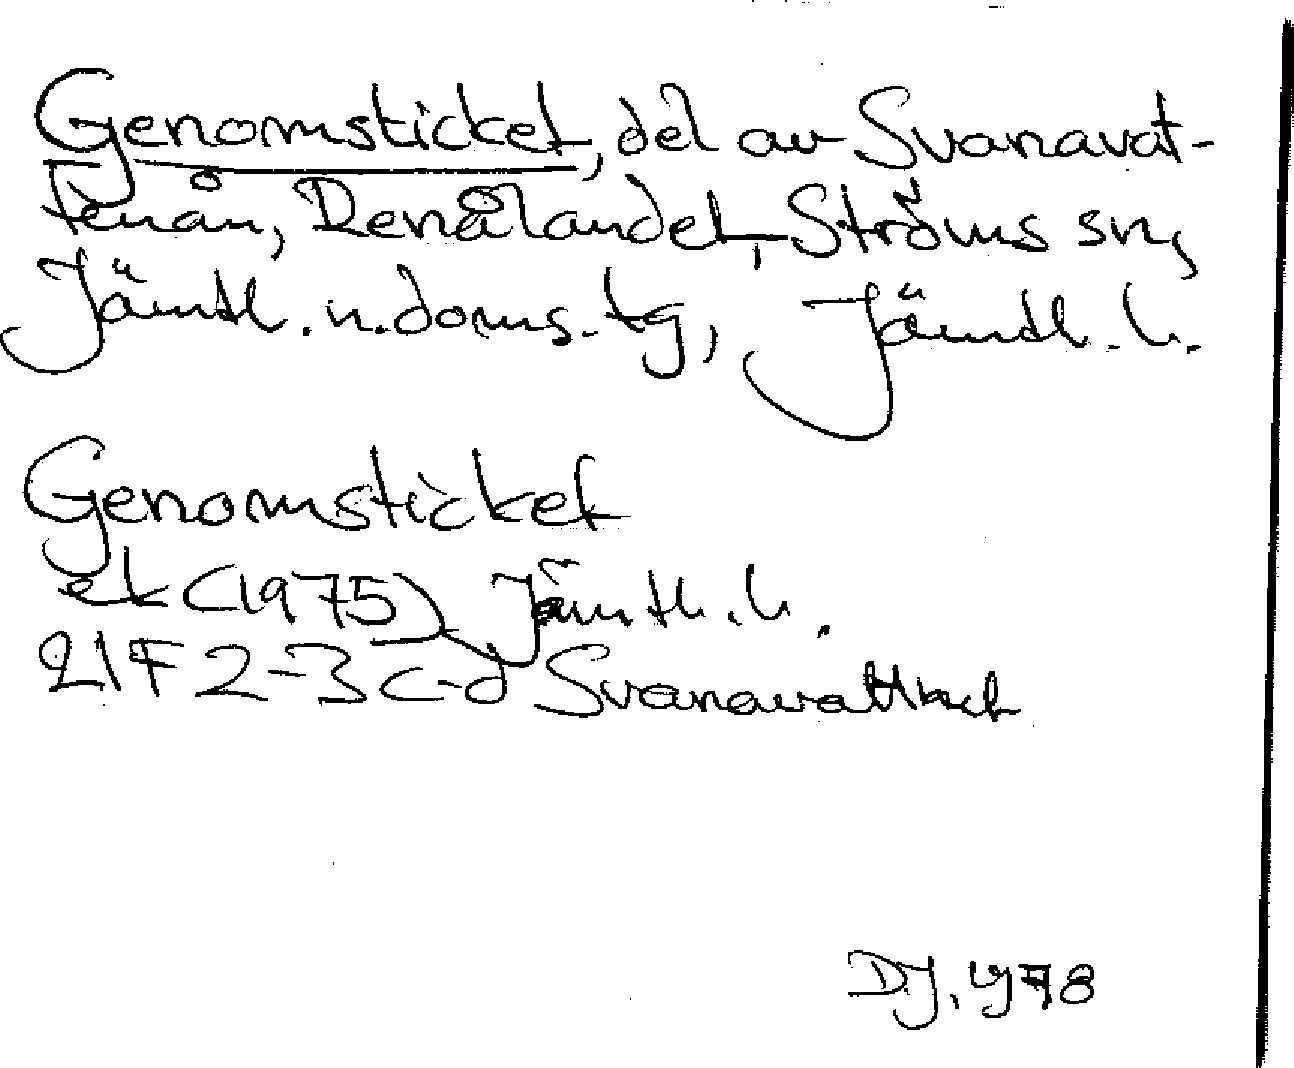 Genomsticket, del av Svanavat-
tenån, Renålandet, Ströms sn,
Jämtl. n. doms. tg, Jämtl. l.
Genomsticket
ek (1975) Jämtl. l.
21F 2-3 c-d Svanavattnet
DJ. 1978